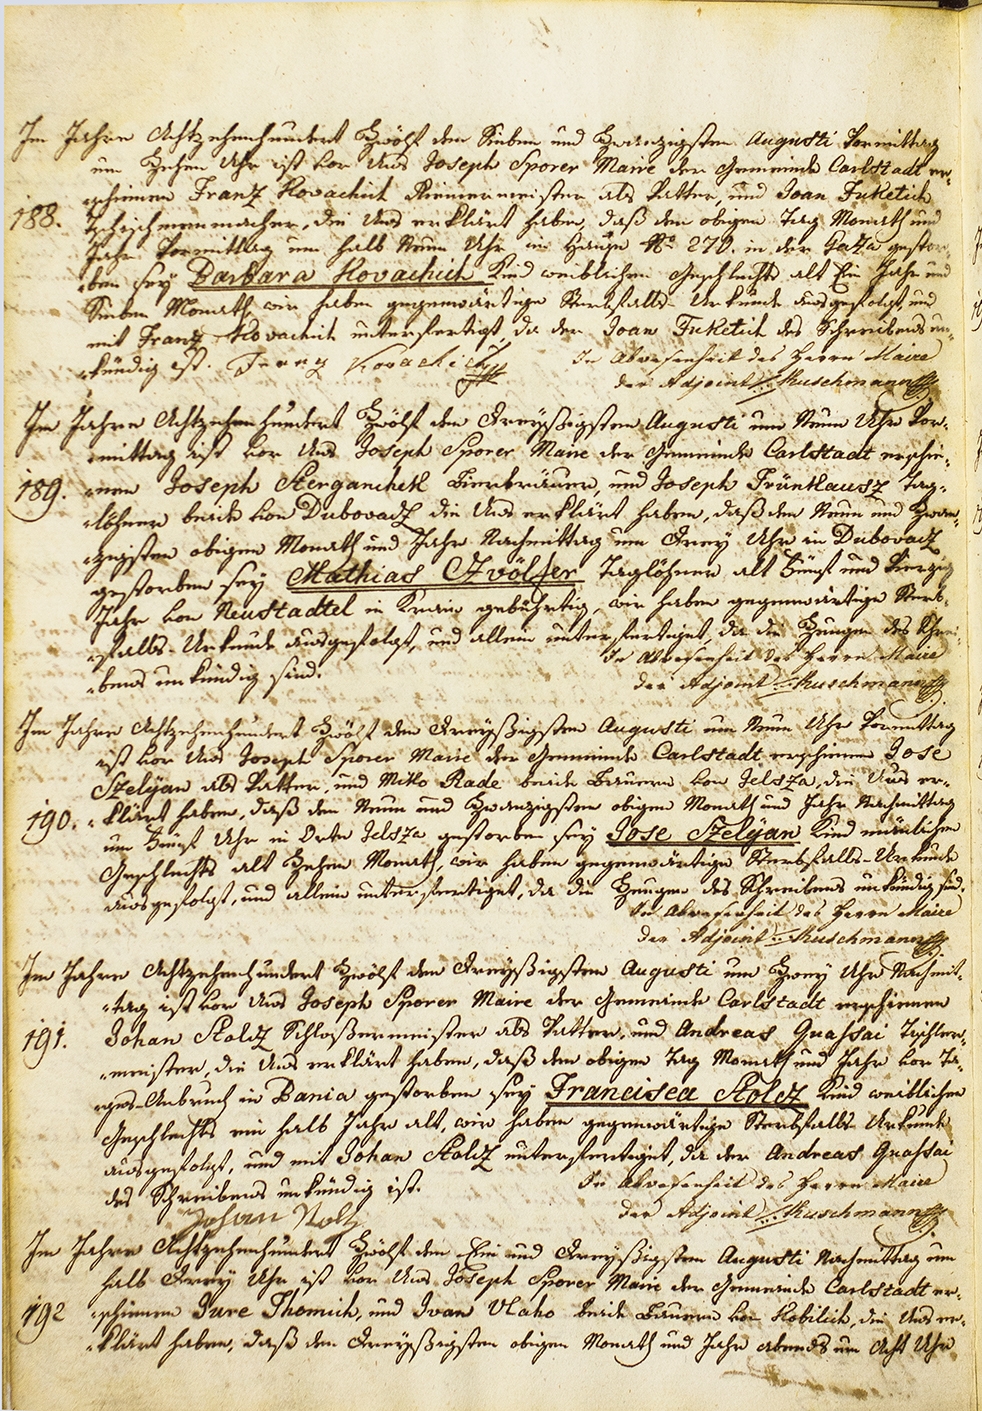 Im Jahre Achtzehenhundert Zwölf den Sieben und Zwanzigsten Augusti Vormittag
um Zehen Uhr ist vor Uns Joseph Sporer Maire der Gemeinde Carlstadt er-
schienen Franz Kovachich Riemermeister als Vatter, und Joan Fuketich
188. Tschischmenmacher, die Uns erklärt haben, daß den obigen Tag Monath und
Jahr Vormittag um halb Neun Uhr im Hause No 270. in der Gaza gestor-
ben sey Barbara Kovachich Kind weiblichen Geschlechts alt Ein Jahr und
Sieben Monath, wir haben gegenwärtige Sterbfalls-Urkunde ausgefolgt, und
mit Franz Kovachich unterfertigt, da der Joan Fuketich des Schreibens un-
kündig ist. Franz Kovachich In Abwesenheit des Herrn Maire
der Adjoint Kuschmann
Im Jahre Achtzehenhundert Zwölf den Dreyßigsten Augusti um Neun Uhr Vor-
mittag ist vor Uns Joseph Sporer Maire der Gemeinde Carlstadt erschie-
189. nen Joseph Sterganchek Bierbräuer, und Joseph Trünkausz Tag-
löhner beide von Dubovacz die Uns erklärt haben, daß den Neun und Zwan-
zigsten obigen Monath und Jahr Nachmittag um Drey Uhr in Dubovacz
gestorben sey Mathias Zvölfer Taglöhner alt Fünf und Vierzig
Jahr von Neustadtel in Krain gebührtig, wir haben gegenwärtige Sterb-
falls-Urkunde ausgefolgt, und allein unterfertiget, da die Zeugen des Schrei-
bens unkündig sind. In Abwesenheit des Herrn Maire
der Adjoint Kuschmann
Im Jahre Achtzehenhundert Zwölf den Dreyßigsten Augusti um Neun Uhr Vormittag
ist vor Uns Joseph Sporer Maire der Gemeinde Carlstadt erschienen Jose
Szelÿan als Vatter, und Miko Rade beide Bauern von Jelsza, die Uns er-
190. klärt haben, daß den Neun und Zwanzigsten obigen Monath und Jahr Nachmittag
um Fünf Uhr in Orte Jelsza gestorben sey Jose Szelÿan Kind mänlichen
Geschlechts alt Zehen Monath, wir haben gegenwärtige Sterbfalls-Urkunde
ausgefolgt, und allein unterfertiget, da die Zeugen des Schreibens unkündig sind.
In Abwesenheit des Herrn Maire
der Adjoint Kuschmann
Im Jahre Achtzehenhundert Zwölf den Dreyßigsten Augusti um Zwey Uhr Nachmit-
tag ist vor Uns Joseph Sporer Maire der Gemeinde Carlstadt erschienen
191. Johan Stolz Schloßermeister als Vatter, und Andreas Guassai Tischler-
meister, die Uns erklärt haben, daß den obigen Tag Monath und Jahr vor Ta-
ges-Anbruch in Bania gestorben sey Francisca Stolz Kind weiblichen
Geschlechts ein halb Jahr alt, wir haben gegenwärtige Sterbfalls Urkunde
ausgefolgt, und mit Johan Stolz unterfertiget, da der Andreas Guassai
des Schreibens unkündig ist. In Abwesenheit des Herrn Maire
Johann Stolz der Adjoint Kuschmann
Im Jahre Achtzehenhundert Zwölf den Ein und Dreyßigsten Augusti Nachmittag um
halb Drey Uhr ist vor Uns Joseph Sporer Maire der Gemeinde Carlstadt er-
192 schienen Jure Thomich, und Ivan Vlaho beide Bauern von Kobilich, die Uns er-
klärt haben, daß den Dreyßigsten obigen Monath und Jahr abends um Acht Uhr